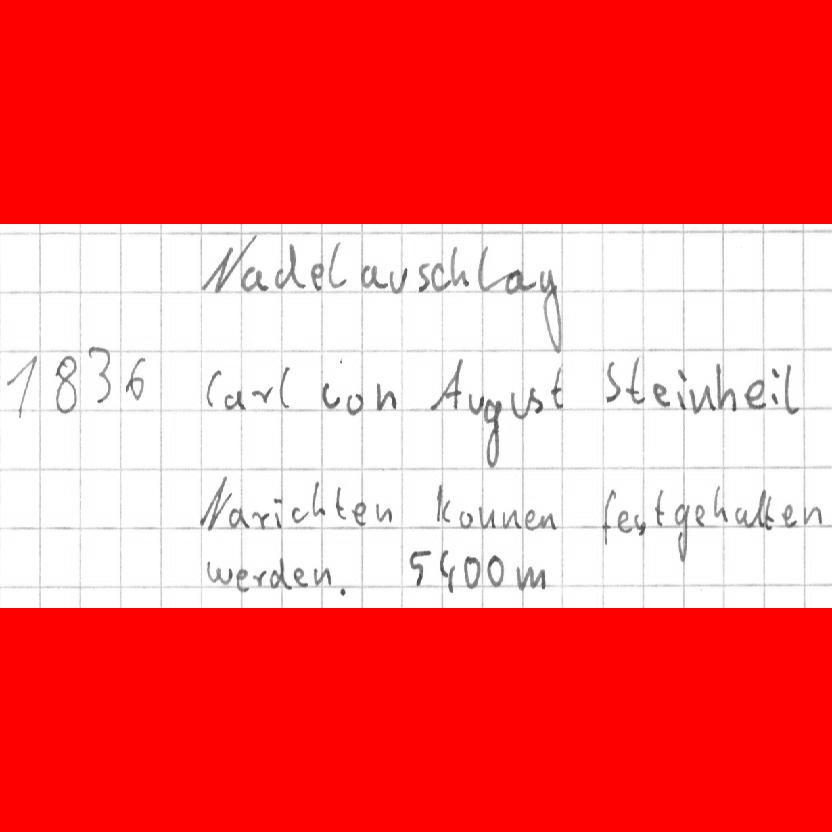 Nadelauschlag
1836 Carl von August Steinheil
Narichten konnen festgehalten
werden. 5400m